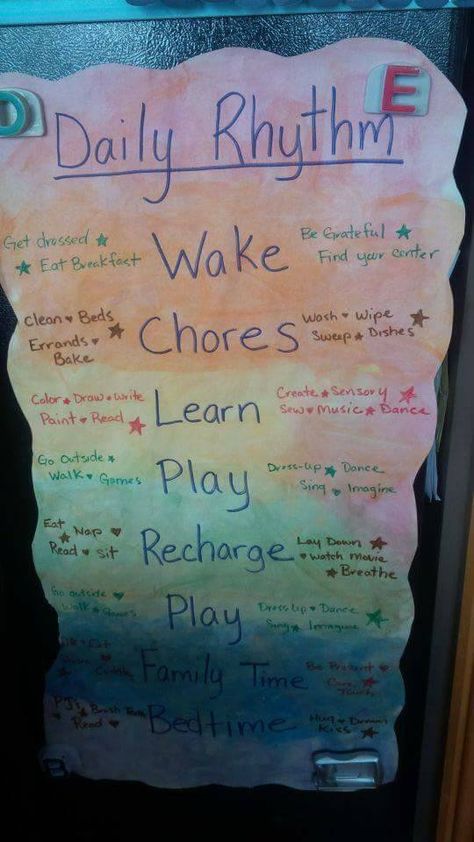 E
Daily Rhythm
Get dressed ★ Wake Be Grateful ★
★ Eat Breakfast Find your center
Clean ♥ Beds Chores Wash ♥ Wipe
Errands ♥ ★ Sweep ★ Dishes ★
Bake
Color ★ Draw ★ Write Learn Create ★ Sensory ★
Paint ♥ Read ★ Sew ♥ Music ★ Dance
Go Outside ★ Play Dress-Up ★ Dance
Walk ♥ Games Sing ♥ Imagine
Eat ★ Nap ♥ Recharge Lay Down ★
Read ♥ Sit ♥ Watch Movie
★ Breathe
Go outside ♥ Play Dress Up ♥ Dance
Walk ★ Games Sing ★ Imagine ★
Eat Family Time Be Present ♥
Touch ★
PJ's ★ Brush Bedtime Hug ♥
Read ♥ Kiss ★
B